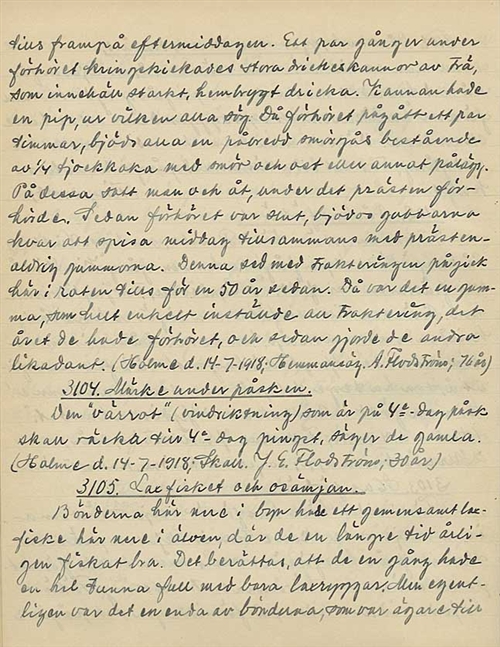 tills frampå eftermiddagen. Ett par gånger under
förhöret kringskickades stora drickeskannor av trä,
som innehöll starkt, hembrygt dricka. Kannan hade
en pip, ur vilken alla sög. Då förhöret pågått ett par
timmar, bjöds alla en påbredd smörgås bestående
av 1/4 tjockkaka med smör och ost eller annat pålägg.
På dessa satt man och åt, under det prästen för-
hörde. Sedan förhöret var slut, bjödos gubbarna
kvar att spisa middag tillsammans med prästen-
aldrig gummorna. Denna sed med trakteringen pågick
här i roten tills för en 50 år sedan. Då var det en gum-
ma, som helt enkelt inställde all traktering, det
året de hade förhöret, och sedan gjorde de andra
likadant. (Holme d. 14-7-1918, Hemmansäg. A. Flodström; 76 år)
3104. Märke under påsken.
Den "värrot" (vindriktning) som är på 4e-dag påsk
skall räcka till 4e dag pingst, säger de gamla.
(Holme d. 14-7-1918; Skall. J. E. Flodström; 30 år)
3105. Laxfisket och osämjan.
Bönderna här nere i byn hade ett gemensamt lax-
fiske här nere i älven, där de en längre tid årli-
gen fiskat bra. Det berättas, att de en gång hade
en hel tunna full med bara laxryggar. Men egent-
ligen var det en enda av bönderna, som var ägare till